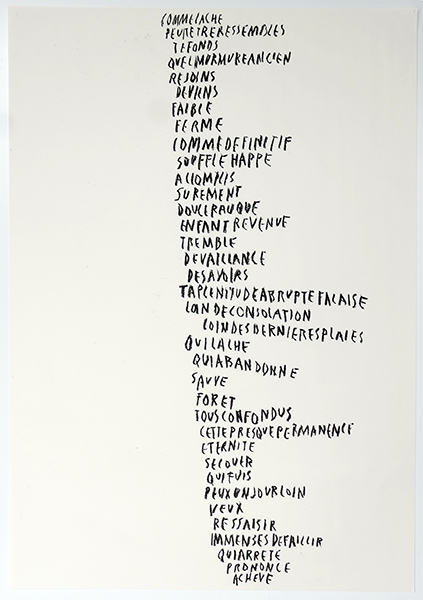 COMMELACHE
PEUTETRERESSEMBLES
TEFONDS
QUELMURMUREANCIEN
REJOINS
DEVIENS
FAIBLE
FERME
COMMEDEFINITIF
SOUFFLEHAPPE
ACCOMPLIS
SUREMENT
DOUCERAUQUE
ENFANTREVENUE
TREMBLE
DEVAILLANCE
DESAVOIRS
TAPLENITUDEABRUPTEFALAISE
LOINDECONSOLATION
LOINDESDERNIERESPLAIES
QUILACHE
QUIABANDONNE
SAUVE
FORET
TOUSCONFONDUS
CETTEPRESQUEPERMANENCE
ETERNITE
SECOUER
QUIFUIS
PEUXUNJOURLOIN
VEUX
RESSAISIR
IMMENSESDEFAILLIR
QUIARRETE
PRONONCE
ACHEVE